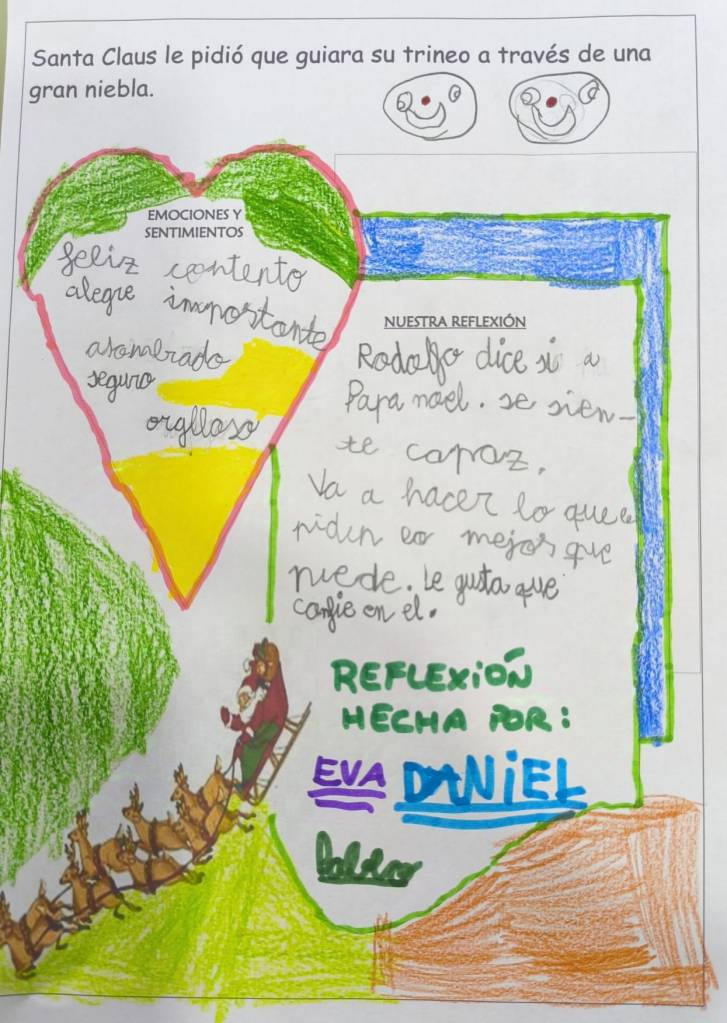 Santa Claus le pidió que guiara su trineo a través de una
gran niebla.
EMOCIONES Y
SENTIMIENTOS
feliz contento
alegre importante
asombrado
seguro
orglloso
NUESTRA REFLEXIÓN
Rodolfo dice si a
Papa noel. se sien-
te capaz.
Va a hacer lo que
piden lo mejor que
puede. Le gusta que
confie en el.
REFLEXIÓN
HECHA POR:
EVA DANIEL